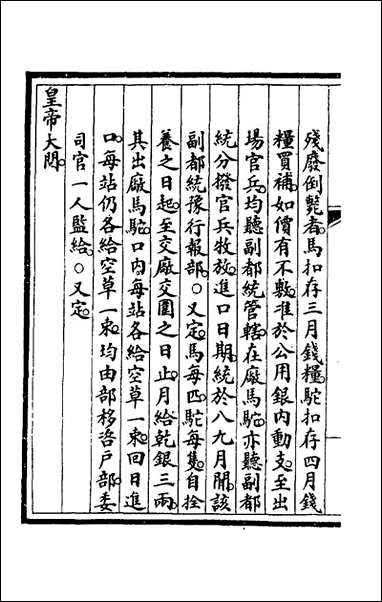 殘廢倒斃者馬扣存三月錢糧駝扣存四月錢
糧買補如價有不敷准於公用銀内動支至出
場官兵均聽副都統管轄在廠馬駝亦聽副都
統分撥官兵牧放進口日期統於八九月間該
副都統豫行報部○又定馬每四駝每隻自拴
養之日起至交廠交圈之日止月給乾銀三兩
其出廠馬駝口内每站各給空草一束回日進
口每站仍各給空草一束均由部移咨戶部委
司官一人監給○又定
皇帝大閱